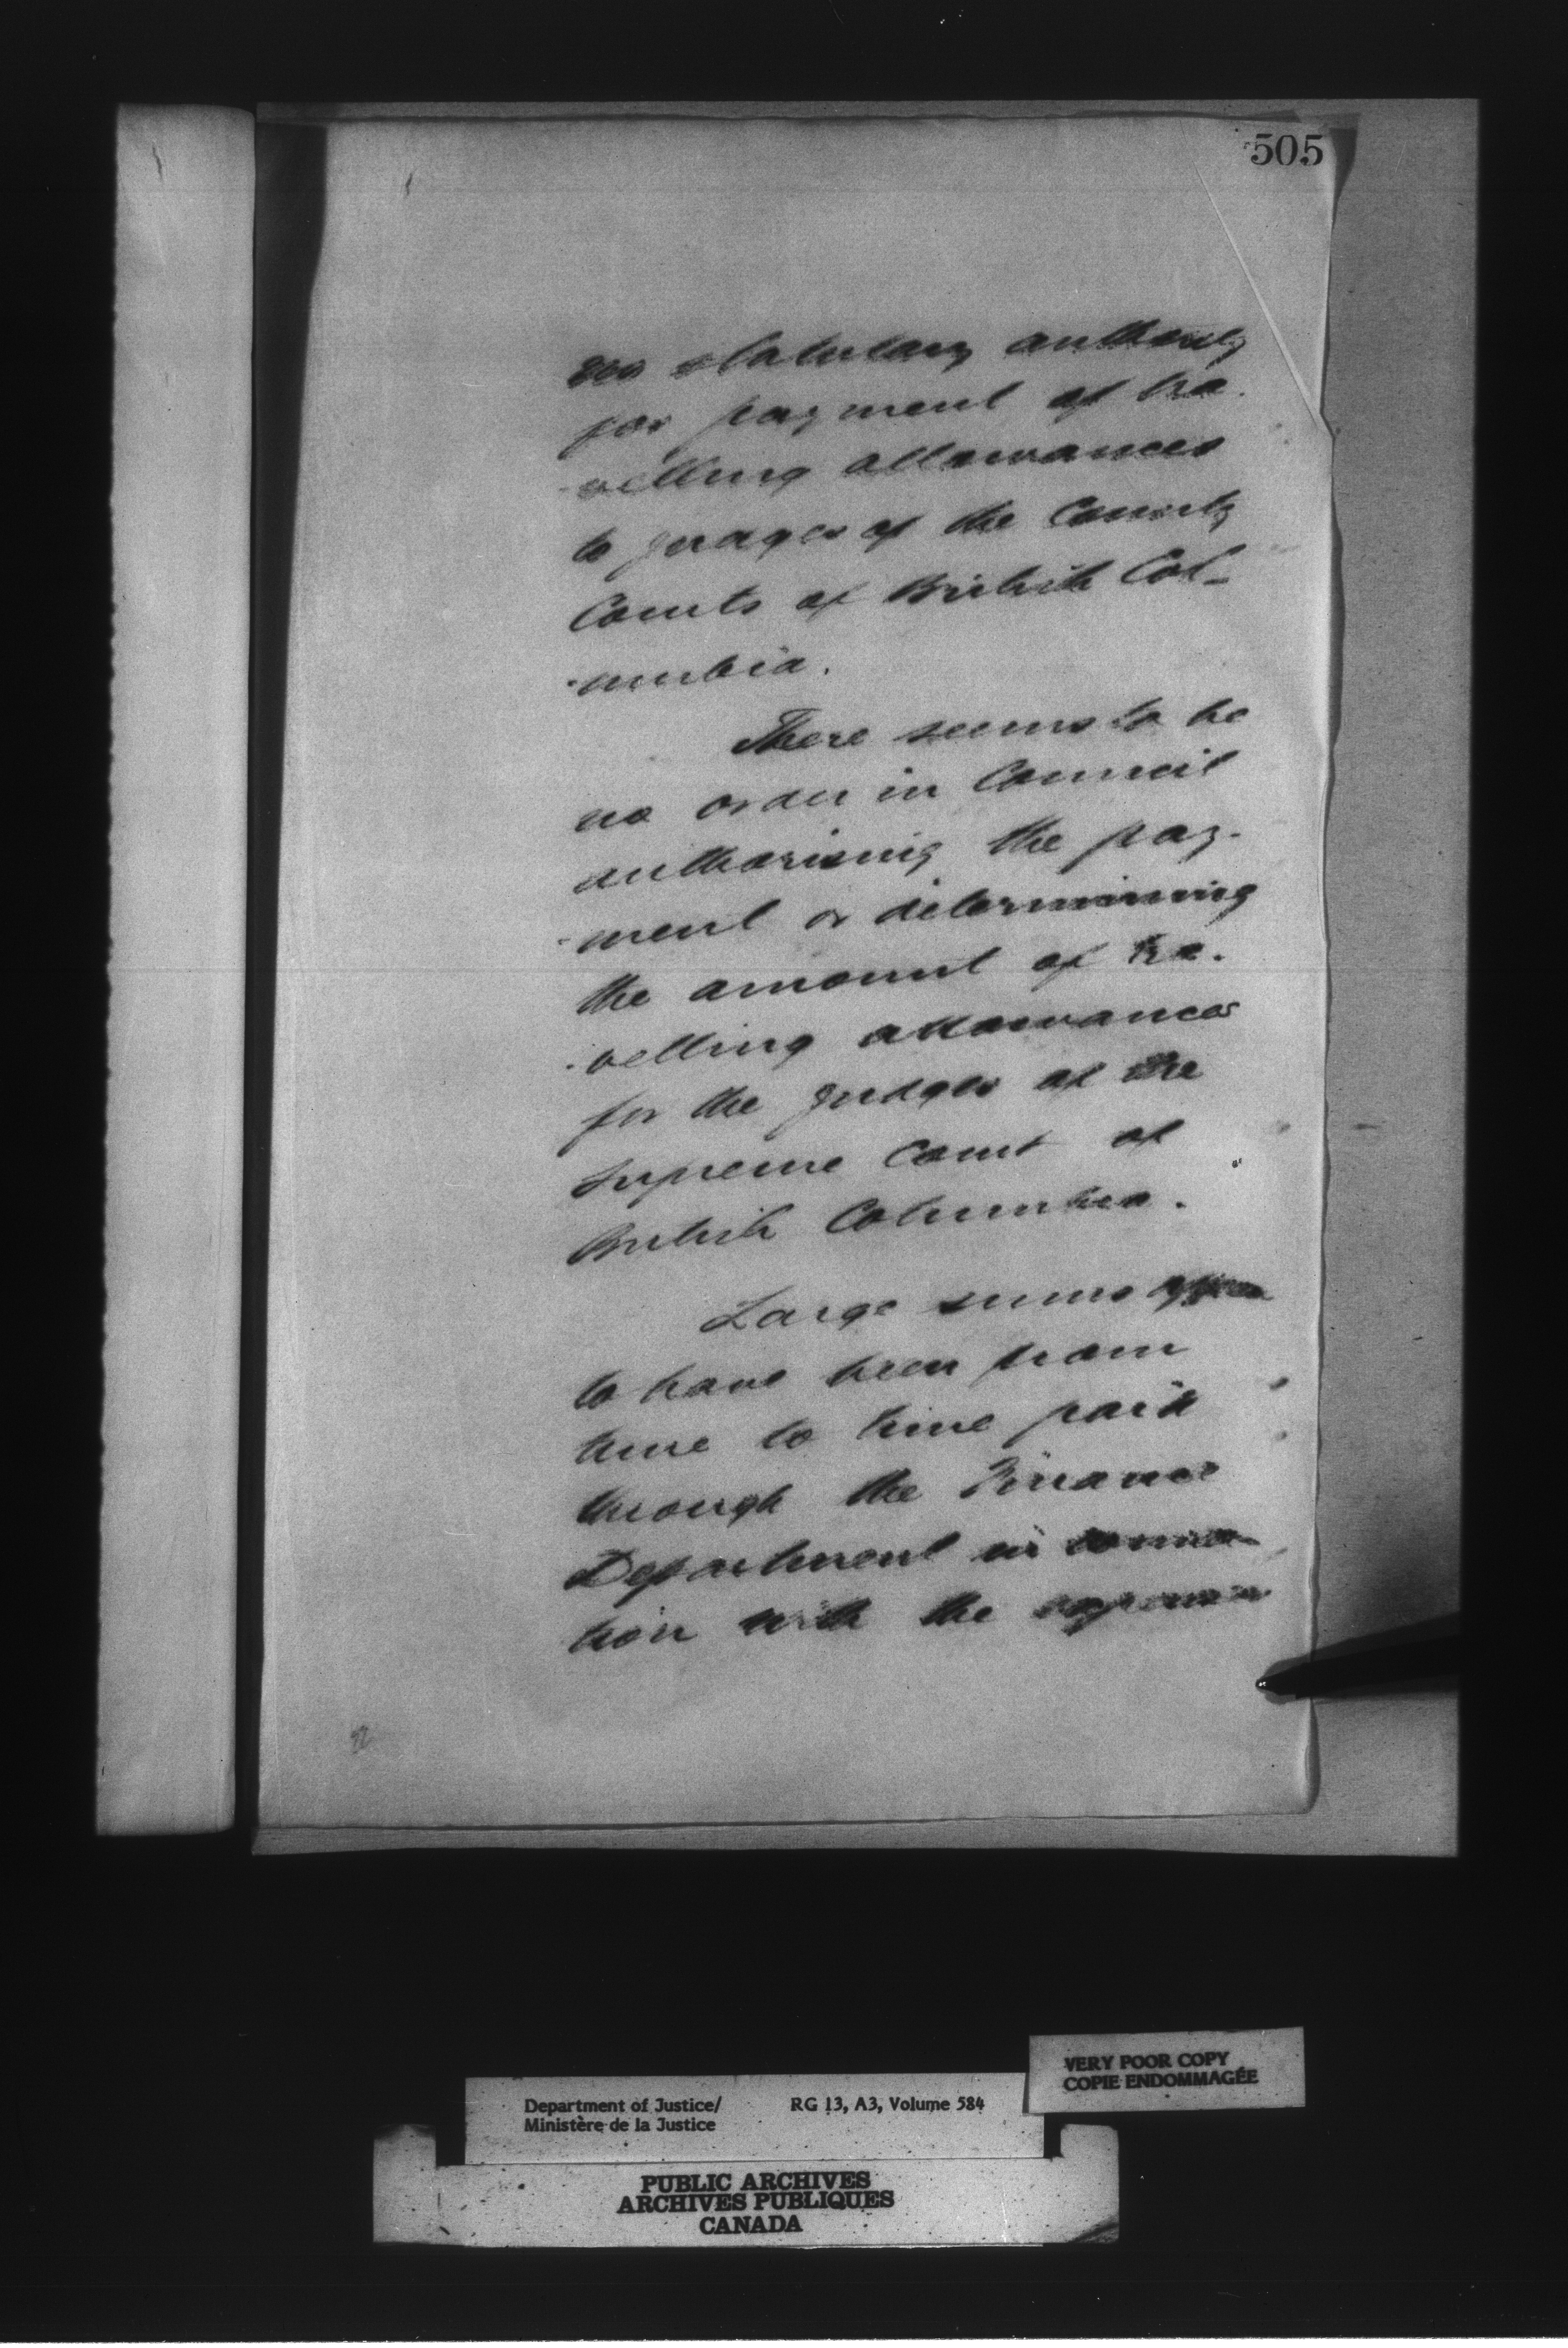 505
no statutary authority
for payment of tra-
-velling allowances
to judges of the County
Courts of British Col-
-umbia.
There seems to be
no order in Council
authorising the pay-
-ment or determining
the amount of tra-
-velling allowances
for the judges of the
Supreme Court of
British Columbia.
Large sums appear
to have been from
time to time paid
through the Finance
Department in connec-
tion with the expenses
VERY POOR COPY
COPIE ENDOMMAGÉE
Department of Justice/ RG 13, A3, Volume 584
Ministère de la Justice
PUBLIC ARCHIVES
ARCHIVES PUBLIQUES
CANADA